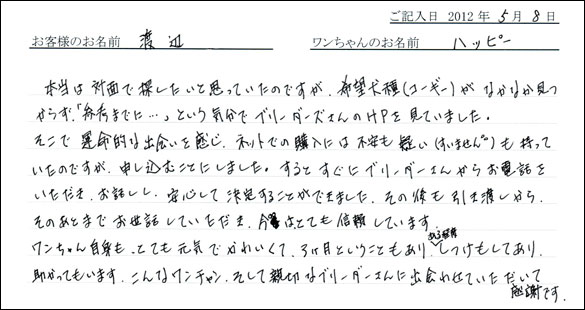 ご記入日 2012年 5月 8日
お客様のお名前 渡辺 ワンちゃんのお名前 ハッピー
本当は対面で探したいと思っていたのですが、希望犬種(コーギー)がなかなか見つ
からず、「参考までに…」という気分でブリーダーズさんのHPを見ていました。
そこで運命的な出会いを感じ、ネットでの購入には不安も疑い(すいません)も持って
いたのですが、申し込むことにしました。するとすぐにブリーダーさんからお電話を
いただき、お話しし、安心して決定することができました。その後も引き渡しから、
そのあとまでお世話していただき、今はとても信頼しています。
ワンちゃん自身も、とても元気でかわいくて、3ヶ月ということもあり、しつけもしてあり、
助かってもいます。こんなワンチャン、そして親切なブリーダーさんに出会わせていただいて
感謝です。